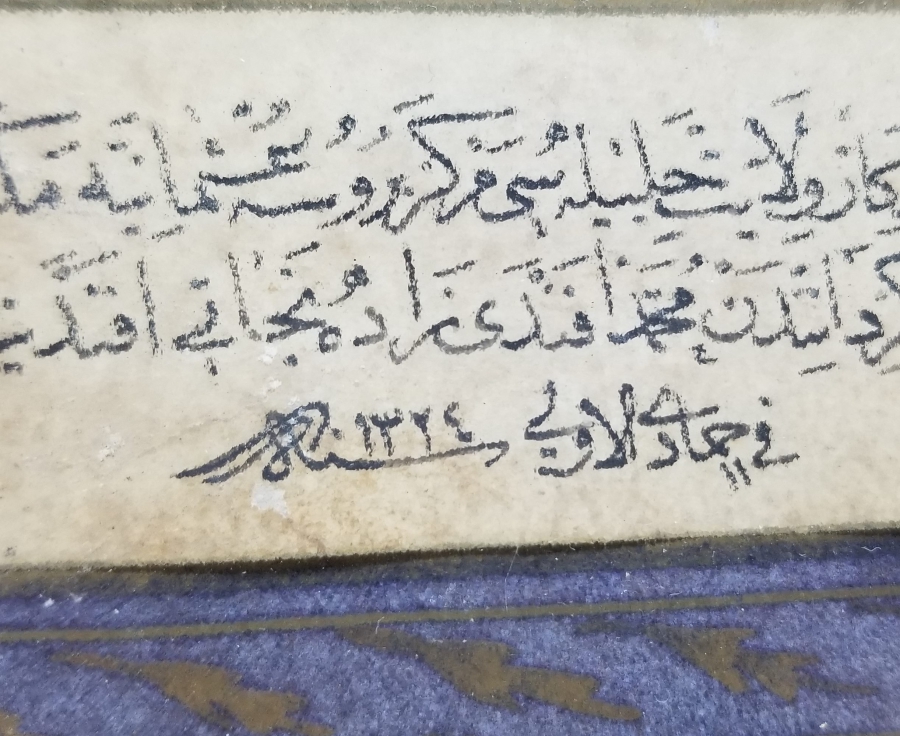 كار ولايت جليله سى مركز بروسه عثمانيه
كردانندن محمد افندى زاده نجاتى افندينـ
فى جمادى الاولى سنه ١٣٢٤